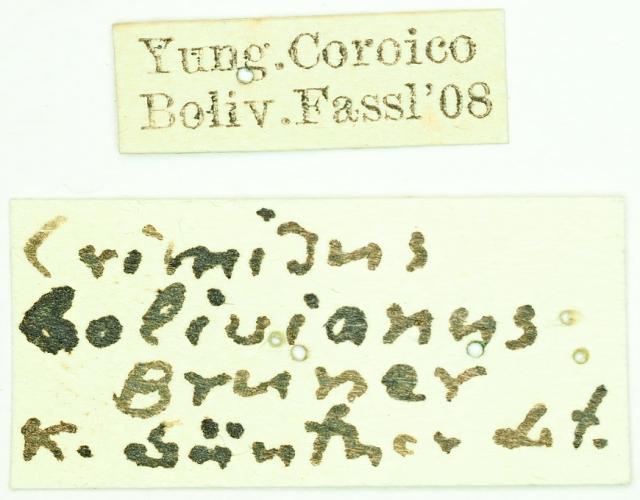 Yung.Coroico
Boliv.Fassl'08
Crimisus
bolivianus
Bruner
K. Günther dt.